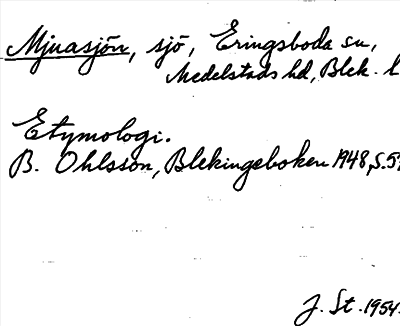 Mjuasjön, sjö, Eringsboda sn,
Medelstads hd, Blek. l
Etymologi.
B. Ohlsson, Blekingeboken 1948, S. 5
J. St. 1954.